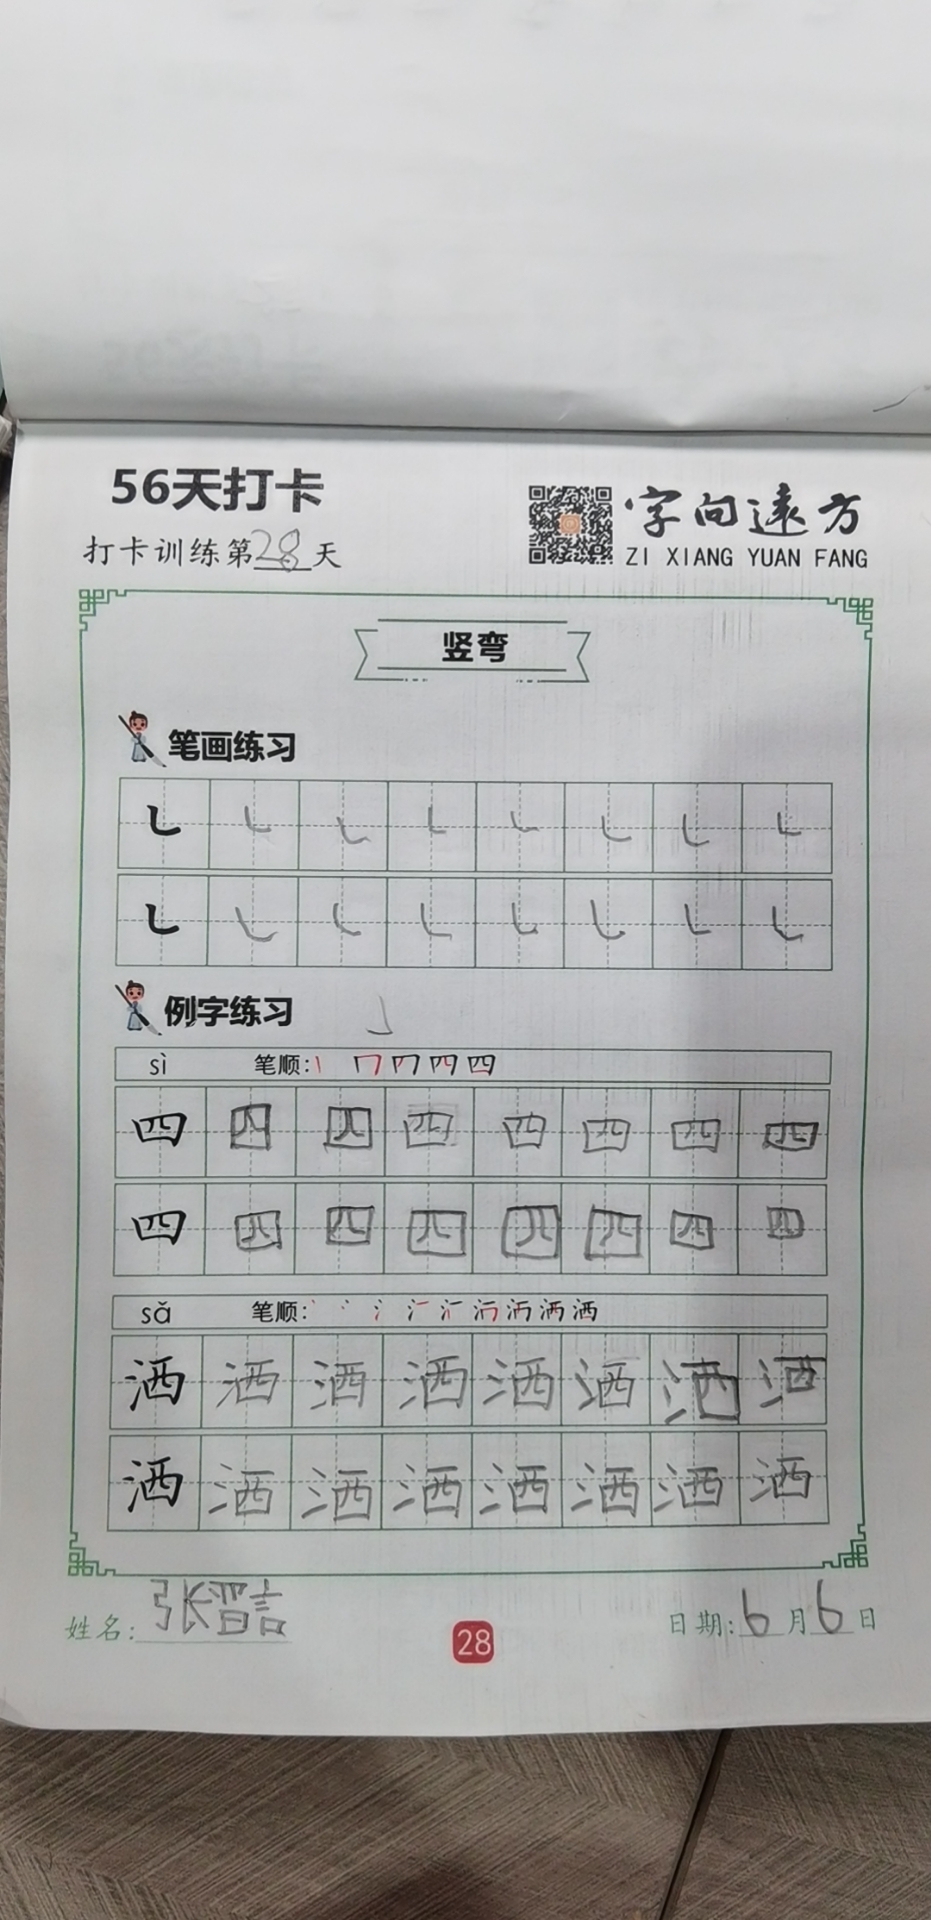 56天打卡
打卡训练第28天
字向远方
ZI XIANG YUAN FANG
竖弯
笔画练习
㇄ ㇄ ㇄ ㇄ ㇄ ㇄ ㇄ ㇄
㇄ ㇄ ㇄ ㇄ ㇄ ㇄ ㇄ ㇄
例字练习
sì 笔顺:
四 四 四 四 四 四 四 四
四 四 四 四 四 四 四 四
sǎ 笔顺:
洒 洒 洒 洒 洒 洒 洒 洒
洒 洒 洒 洒 洒 洒 洒 洒
姓名:张
28
日期:6月6日